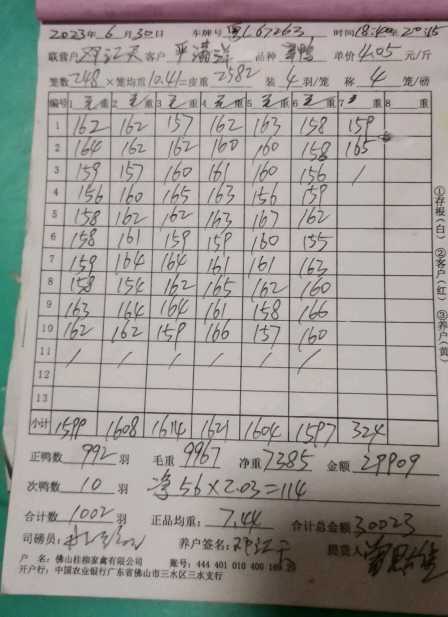 2023年6月30日 车牌号 粤L67263 时间18:40至20:45
联营户 邓江天 客户 平满洋 品种 草鸭 单价4.05元/斤
笼数248×笼均重10.41=皮重2582 装4羽/笼 称4笼/磅
编号 1 毛重 2 毛重 3 毛重 4 毛重 5 毛重 6 毛重 7 重 8 重
1 162 162 157 162 163 158 159
2 164 162 162 160 160 158 165
3 159 157 160 161 160 156 /
4 156 160 165 163 156 159
5 158 162 162 163 167 162
6 158 161 159 159 160 155
7 159 164 164 161 161 163
8 158 154 162 165 162 160
9 163 164 164 161 158 166
10 162 162 159 166 157 160
11 / / / / / /
12
13
小计 1599 1608 1614 1621 1604 1597 324
正鸭数 992 羽 毛重 9967 净重 7385 金额 29909
次鸭数 10 羽 净56×2.03=114
合计数 1002 羽 正品均重: 7.44 合计总金额 30023
司磅员: 养户签名: 邓江天 提货人
户 名: 佛山桂柳家禽有限公司 账号: 444 401 010 400 169
开户行: 中国农业银行广东省佛山市三水区三水支行
①存根(白) ②客户(红) ③养户(黄)